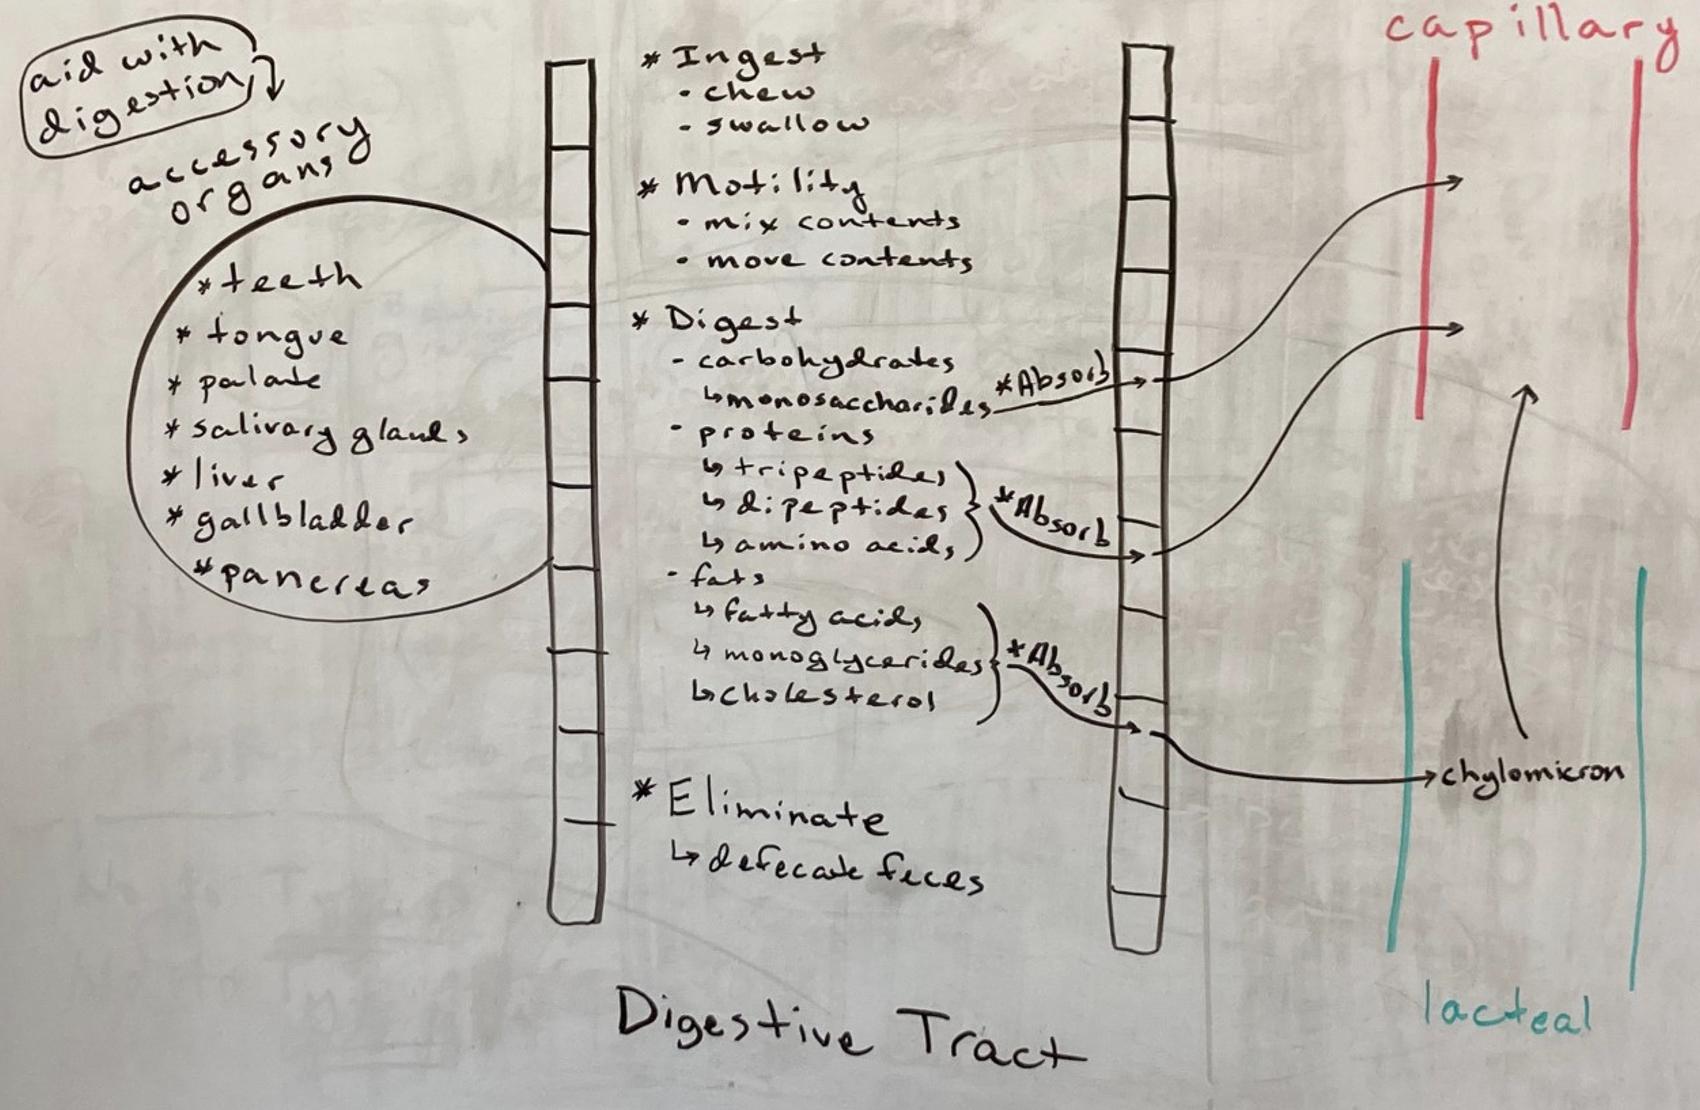 aid with
digestion
accessory
organs
* teeth
* tongue
* palate
* salivary glands
* liver
* gallbladder
* pancreas
* Ingest
- chew
- swallow
* Motility
- mix contents
- move contents
* Digest
- carbohydrates
↳ monosaccharides
* Absorb
- proteins
↳ tripeptides
↳ dipeptides
↳ amino acids
* Absorb
- fats
↳ fatty acids
↳ monoglycerides
↳ cholesterol
* Absorb
* Eliminate
↳ defecate feces
capillary
chylomicron
lacteal
Digestive Tract